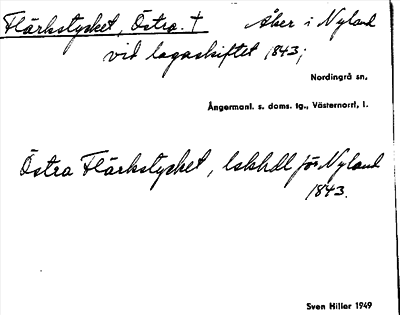 Flärkstycket, Östra. † Åker i Nyland
vid lagaskiftet 1843;
Nordingrå sn,
Ångermanl. s. doms. tg., Västernorrl, l.
Östra Flärkstycket, lskhdl för Nyland
1843.
Sven Hillor 1949